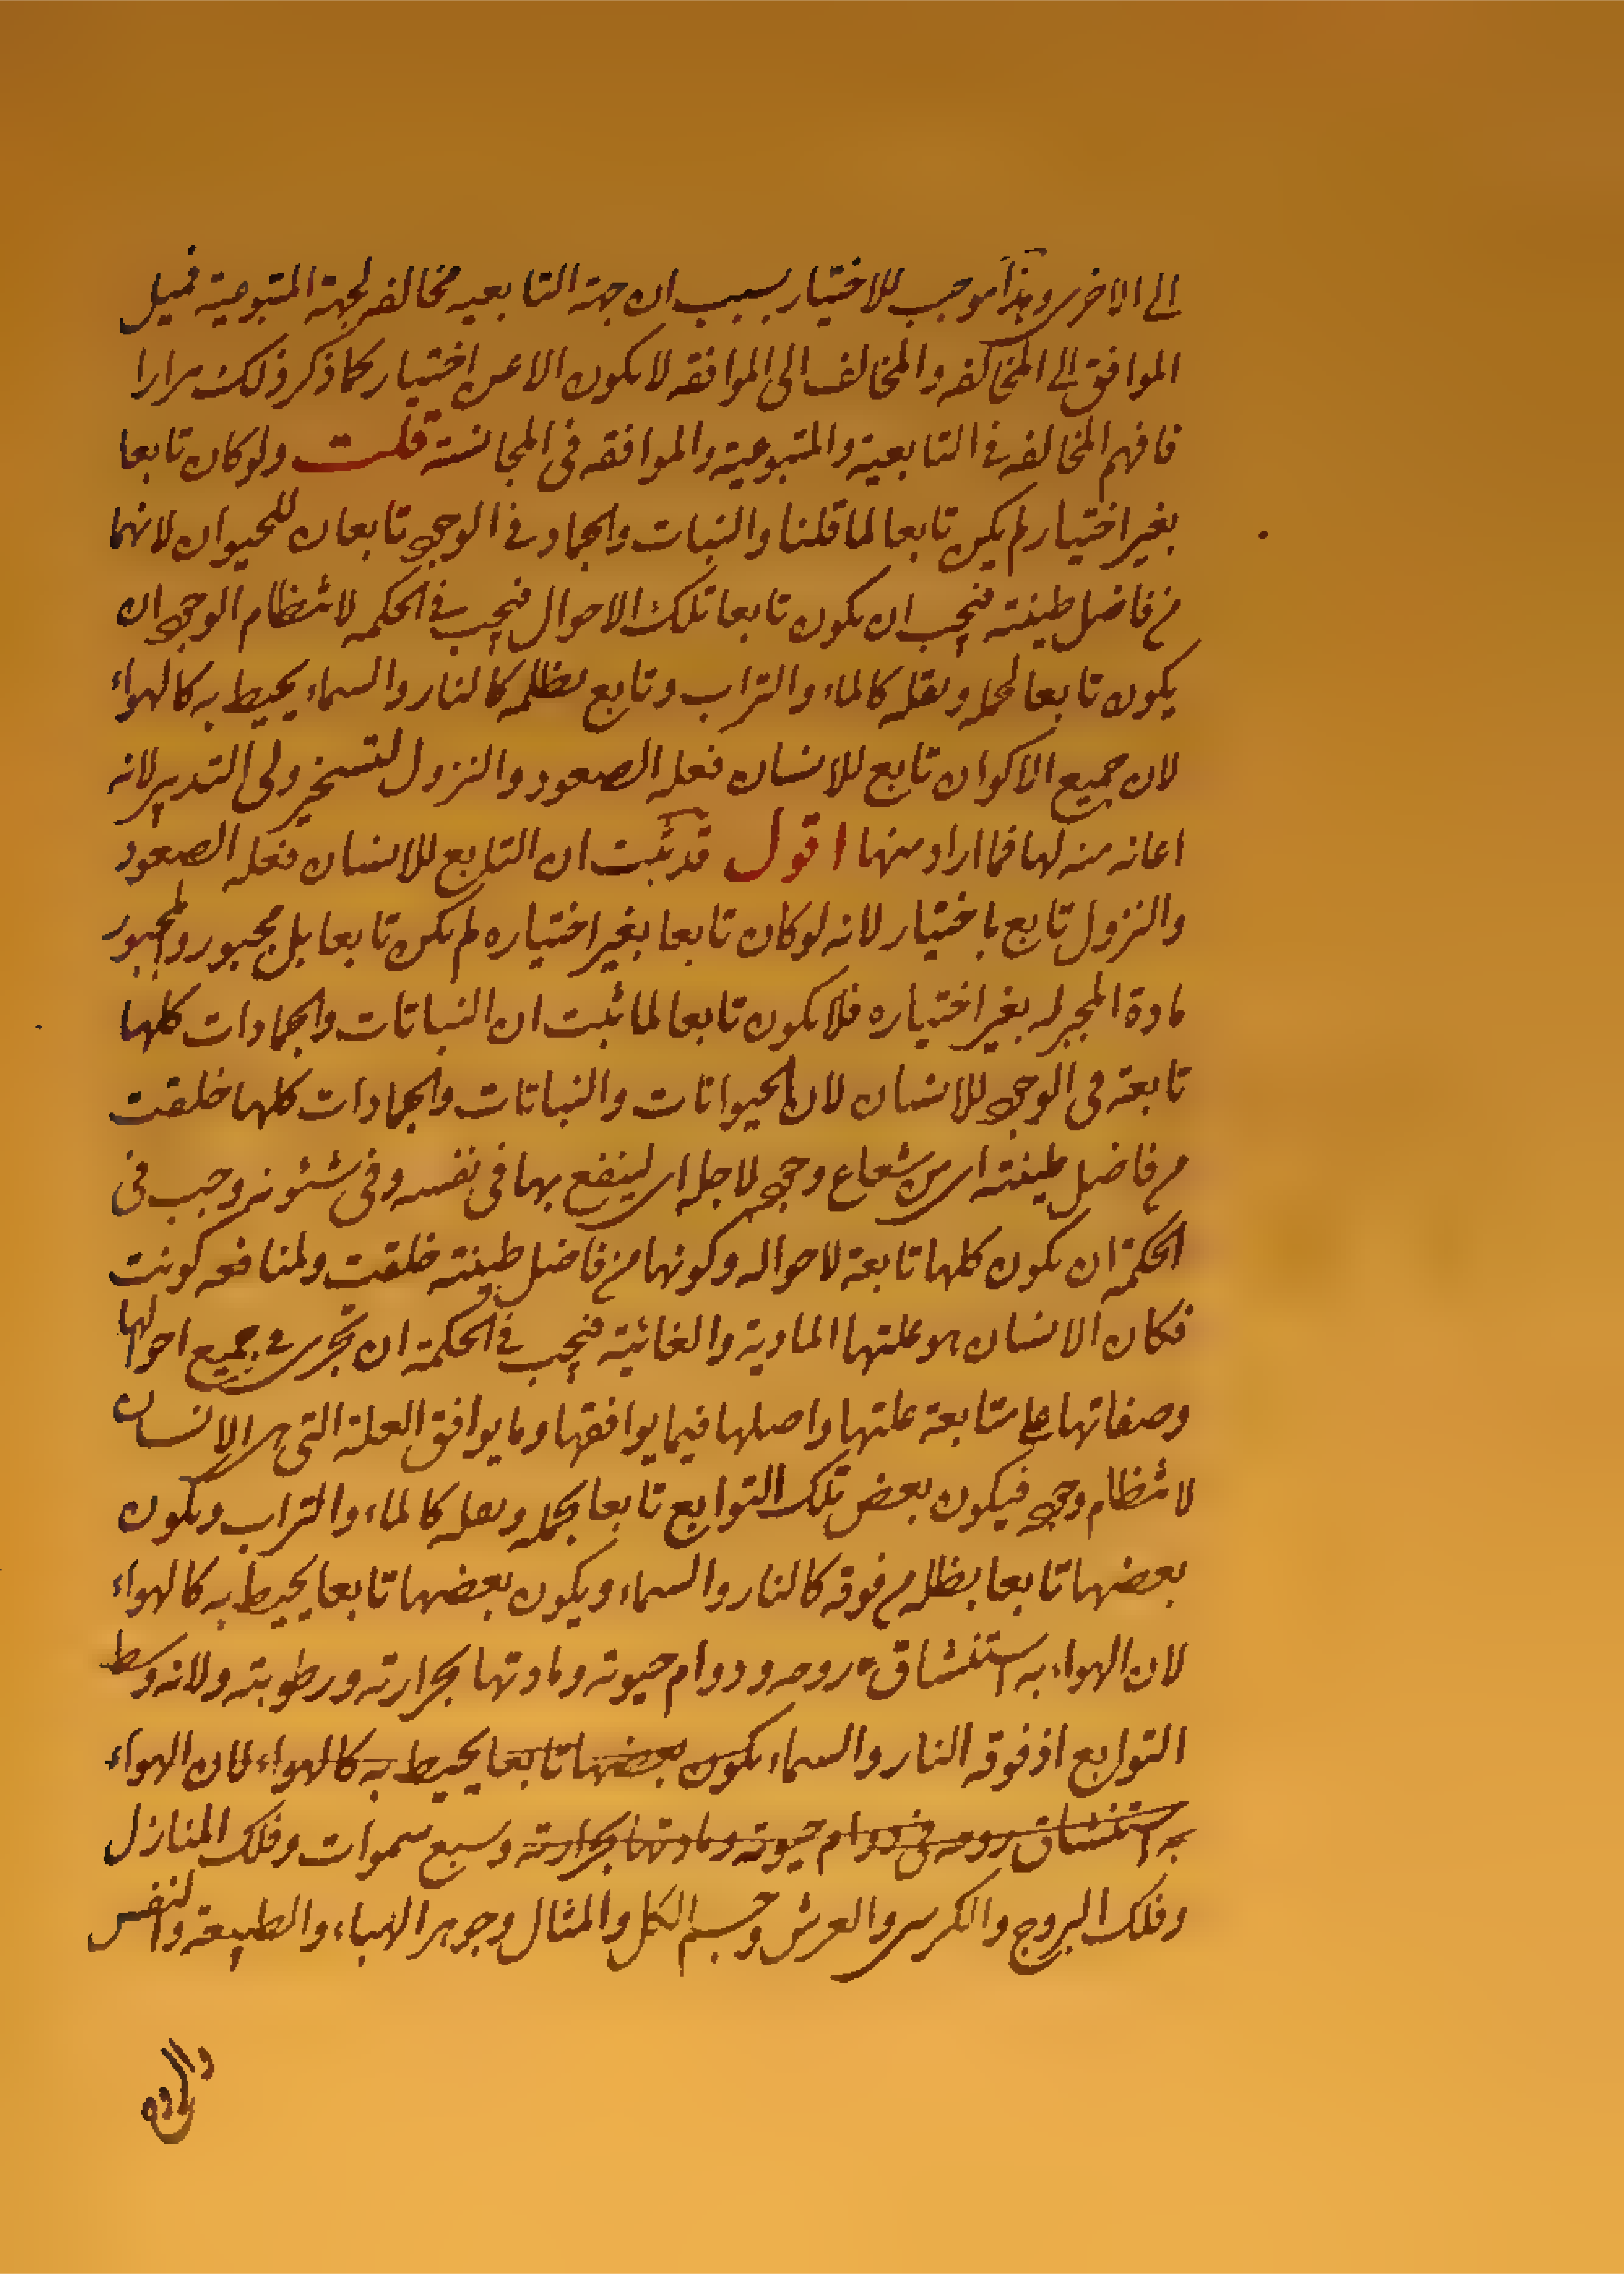 الى الاخرى وهذا موجب للاختيار بسبب ان جهة التابعيه مخالفه لجهة المتبوعية فميل
الموافق الى المخالفه والمخالف الى الموافقه لا يكون الا عن اختيار كما ذكر ذلك مرارا
فافهم المخالفه في التابعية والمتبوعية والموافقه في المجانسته قلت ولو كان تابعا
بغير اختيار لم يكن تابعا لما قلنا والنبات والجماد في الوجود تابعان للحيوان لانهما
من فاضل طينته فيجب ان يكون تابعا تلك الاحوال فيجب في الحكمه لانتظام الوجود ان
يكون تابعا لحمله ونقله كالماء والتراب وتابع يظله كالنار والسماء يحيط به كالهواء
لان جميع الاكوان تابع للانسان فعله الصعود والنزول لتسخير ولى التدبير لانه
اعانه منه لها فما اراد منها اقول قد ثبت ان التابع للانسان فعله الصعود
والنزول تابع باختيار لانه لو كان تابعا بغير اختياره لم يكن تابعا بل مجبور والمجبور
مادة المجبر له بغير اختياره فلا يكون تابعا لما ثبت ان النباتات والجمادات كلها
تابعة في الوجود للانسان لان الحيوانات والنباتات والجمادات كلها خلقت
من فاضل طينته اى من شعاع وجوده لاجله اى لينفع بها في نفسه وفى شئونه وجب في
الحكمة ان يكون كلها تابعة لاحواله وكونها من فاضل طينته خلقت ولمنافعه كونت
فكان الانسان هو علتها المادية والغائية فيجب في الحكمة ان تجرى في جميع احوالها
وصفاتها على متابعة علتها واصلها فيما يوافقها وما يوافق العلة التي هى الانسان
لانتظام وجوده فيكون بعض تلك التوابع تابعا بحمله ونقله كالماء والتراب ويكون
بعضها تابعا يظله من فوقه كالنار والسماء ويكون بعضها تابعا يحيط به كالهواء
لان الهواء به استنشاق روحه ودوام حيوته ومادتها بحرارته ورطوبته ولانه وسط
التوابع اذ فوقه النار والسماء يكون بعضها تابعا يحيط به كالهواء لان الهواء
به استنشاق روحه في دوام حيوته ومادتها بحرارته وسبع سموات وفلك المنازل
وفلك البروج والكرسى والعرش وجسم الكل والمثال وجوهر الهباء والطبيعة والنفس